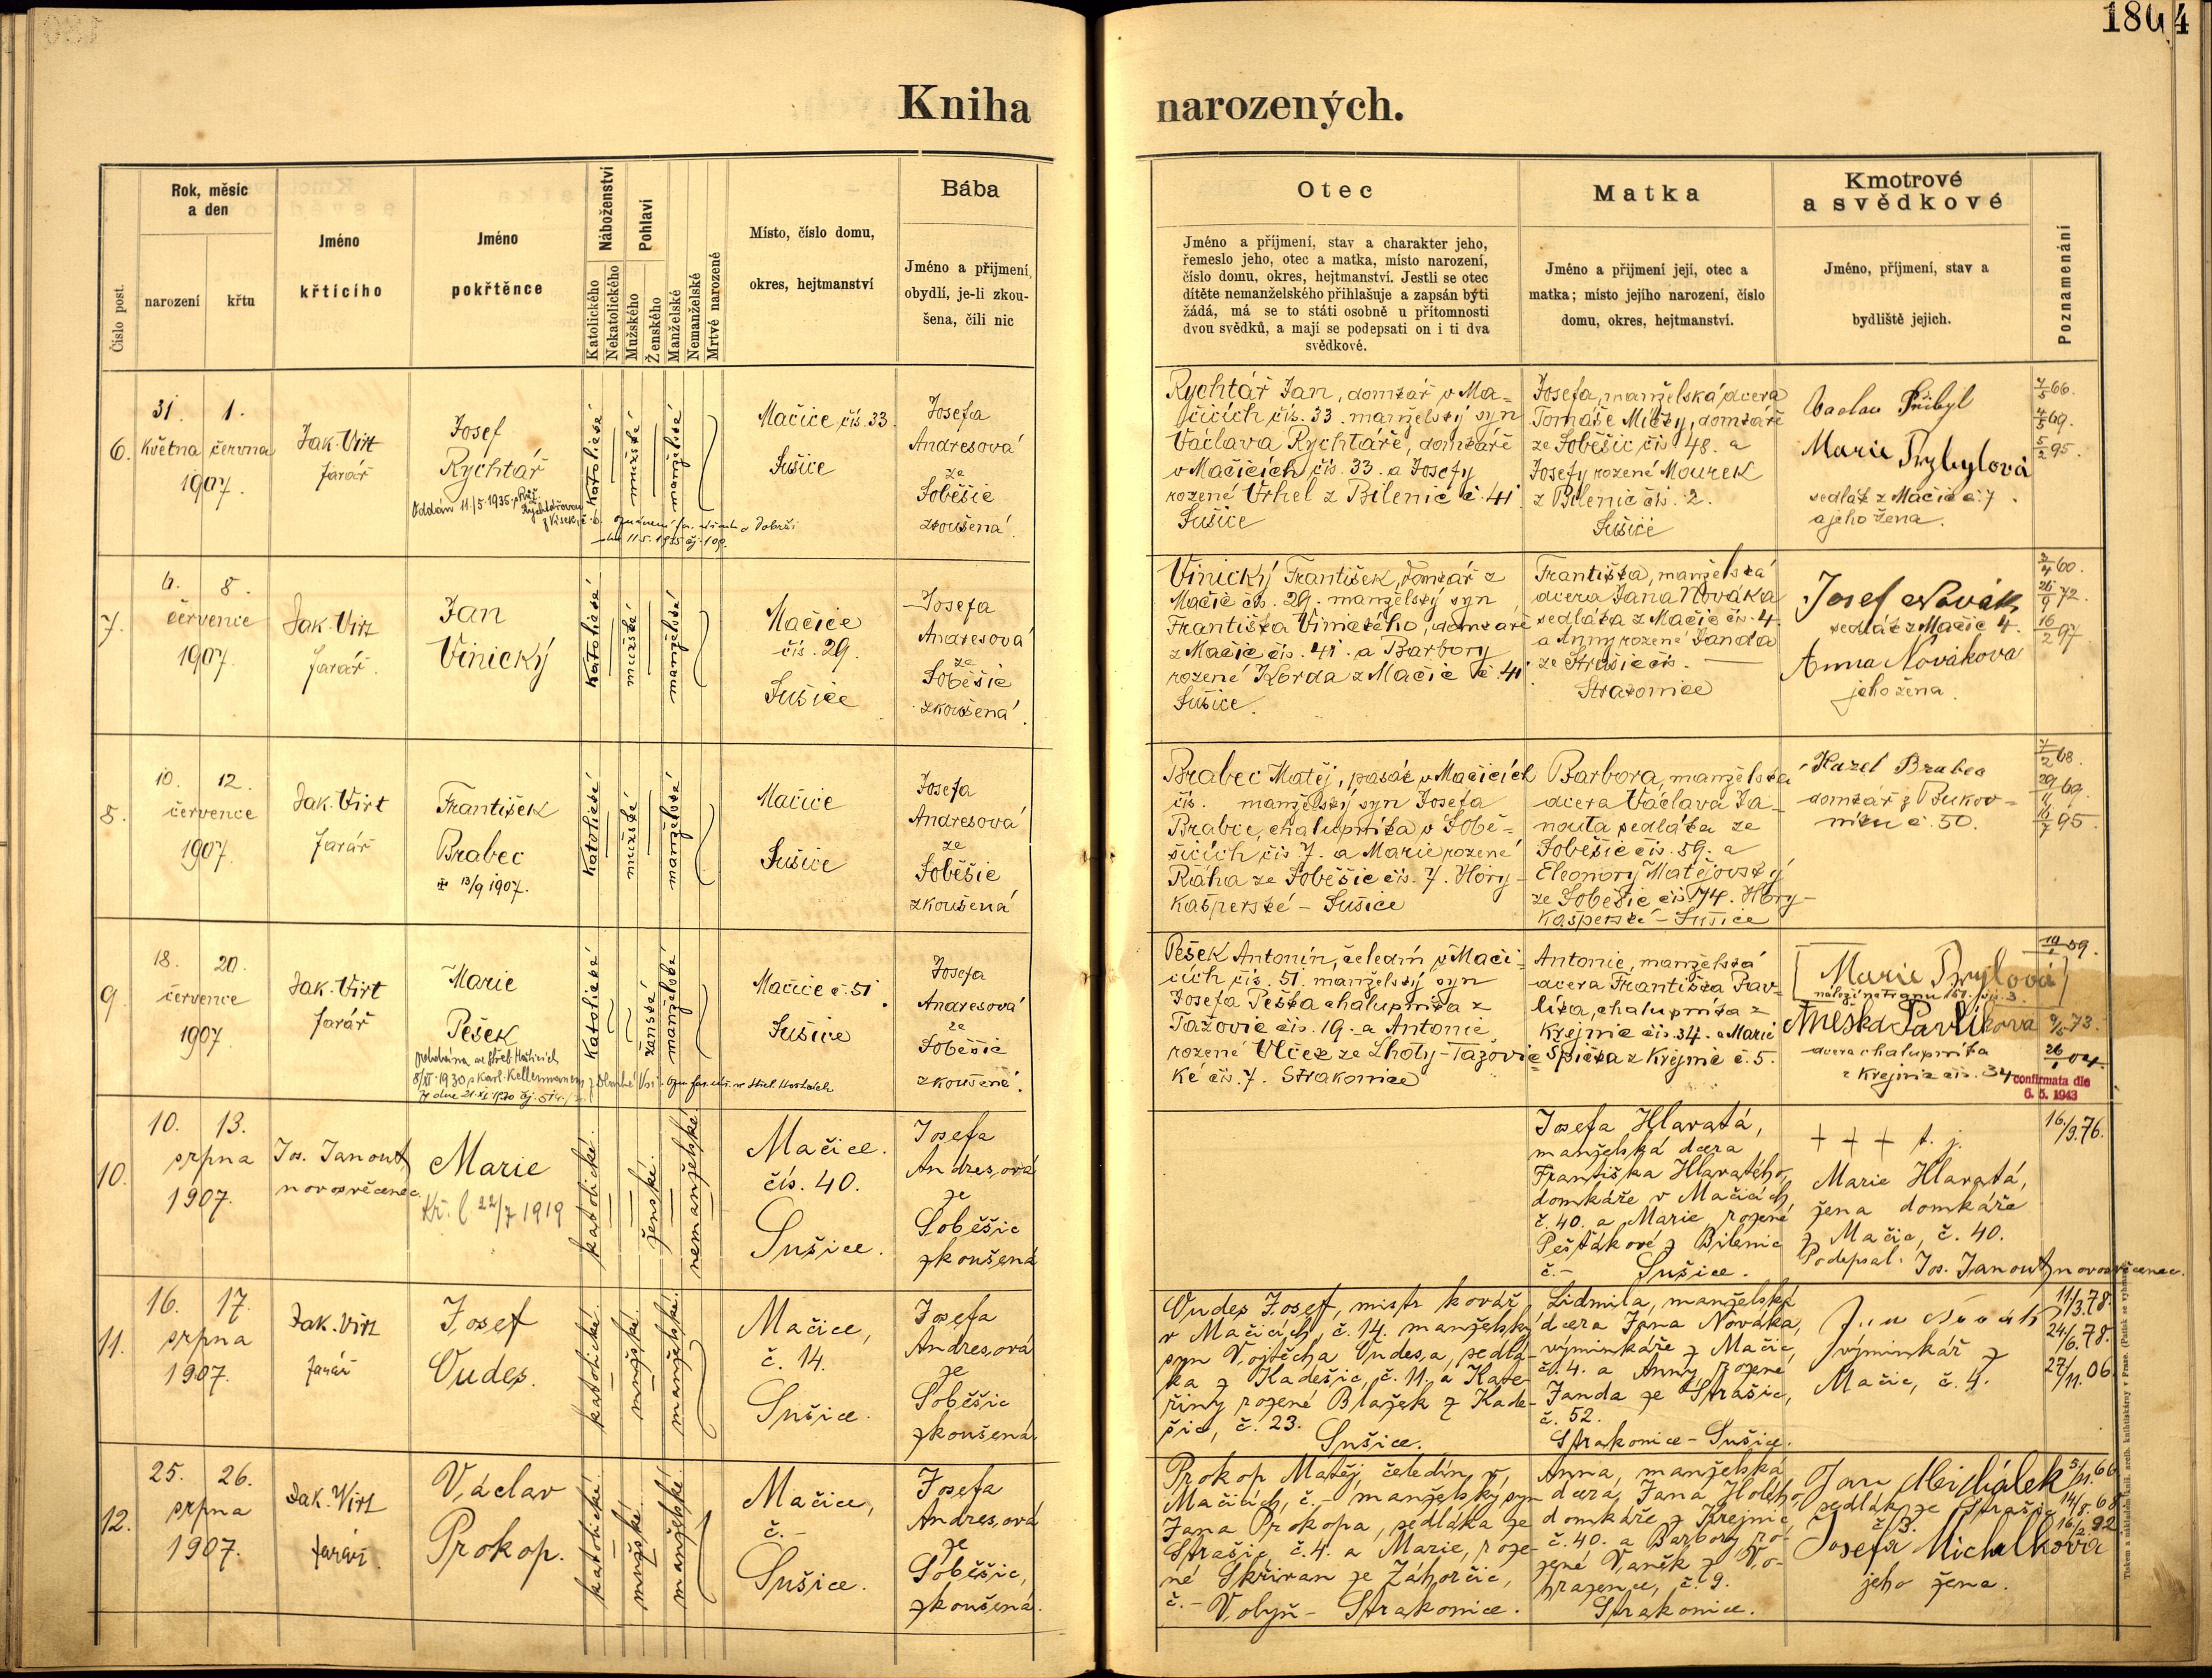 180 4
Kniha narozených.
Číslo post.
Rok, měsíc
a den
narození
křtu
Jméno
křtícího
Jméno
pokřtěnce
Náboženství
Katolického
Nekatolického
Pohlaví
Mužského
Ženského
Manželské
Nemanželské
Mrtvě narozené
Místo, číslo domu,
okres, hejtmanství
Bába
Jméno a příjmení,
obydlí, je-li zkou-
šena, čili nic
Otec
Jméno a příjmení, stav a charakter jeho,
řemeslo jeho, otec a matka, místo narození,
číslo domu, okres, hejtmanství. Jestli se otec
dítěte nemanželského přihlašuje a zapsán býti
žádá, má se to státi osobně u přítomnosti
dvou svědků, a mají se podepsati on i ti dva
svědkové.
Matka
Jméno a přijmení její, otec a
matka; místo jejího narození, číslo
domu, okres, hejtmanství.
Kmotrové
a svědkové
Jméno, příjmení, stav a
bydliště jejich.
Poznamenání
6.
31. 1.
května června
1907.
Jak. Virt
farář
Josef
Rychtář
Oddán 11/5 1935
katolické
mužské
manželské
Mačice čís. 33.
Sušice
Josefa
Andresová
ze
Soběšic
zkoušená.
Rychtář Jan, domkář v Ma-
čicích čís. 33. manželský syn
Václava Rychtáře, domkáře
v Mačicích čís. 33. a Josefy
rozené Vrhel z Bilenic č. 41
Sušice
Josefa, manželská dcera
Tomáše Mičky, domkáře
ze Soběšic čís. 48. a
Josefy rozené Mourek
z Bilenic čís. 2.
Sušice
Vaclav Přibyl
Marie Przybylová
sedlák z Mačic č. 7.
a jeho žena.
7/5 66.
4/5 69.
5/2 95.
7.
6. 8.
července
1907.
Jak. Virt
farář.
Jan
Vinický
katolické
mužské
manželské
Mačice
čís. 29.
Sušice
Josefa
Andresová
ze
Soběšic
zkoušená.
Vinický František, domkář z
Mačic čís. 29. manželský syn
Františka Vinického, domkáře
z Mačic čís. 41. a Barbory
rozené Korda z Mačic č. 41
Sušice.
Františka, manželská
dcera Jana Nováka
sedláka z Mačic čís. 4.
a Anny rozené Janda
ze Strašic čís. —
Strakonice
Josef Novák
sedlák z Mačic 4.
Anna Nováková
jeho žena.
2/4 60.
26/9 72.
16/2 97.
8.
10. 12.
července
1907.
Jak. Virt
farář
František
Brabec
13/9 1907.
katolické
mužské
manželské
Mačice
Sušice
Josefa
Andresová
ze
Soběšic
zkoušená
Brabec Matěj, pasák v Mačicích
čís. manželský syn Josefa
Brabce, chalupníka v Sobě-
šicích čís. 7. a Marie rozené
Ráha ze Soběšic čís. 7. Hory-
kašperské - Sušice
Barbora, manželská
dcera Václava Ja-
nouta sedláka ze
Soběšic čís. 59. a
Eleonory Matějovský
ze Soběšic čís. 74. Hory-
kašperské - Sušice
Karel Brabec
domkář z Bukov-
níku č. 50.
7/2 68.
29/11 69.
16/7 95.
9.
18. 20.
července
1907.
Jak. Virt
farář.
Marie
Pešek
katolické
ženské
manželské
Mačice č. 51
Sušice
Josefa
Andresová
ze
Soběšic
zkoušené.
Pešek Antonín, čeledín v Mači-
cích čís. 51. manželský syn
Josefa Peška chalupníka z
Tažovic čís. 19. a Antonie
rozené Vlček ze Lhoty-Tažovic-
ké čís. 7. Strakonice
Antonie, manželská
dcera Františka Pav-
líka, chalupníka z
Krejnic čís. 34. a Marie
Spička z Krejnic č. 5.
Anežka Pavlíkova
dcera chalupníka
z Krejnic čís. 34
26/1 04.
confirmata die
6. 5. 1943
10.
10. 13.
srpna
1907.
Jos. Janout,
novosvěcenec.
Marie
22/7 1919
katolické.
ženské.
nemanželské.
Mačice.
čís. 40.
Sušice.
Josefa
Andresová
ze
Soběšic
zkoušená
Josefa Hlavatá,
manželská dcera
Františka Hlavatého,
domkáře v Mačicích,
č. 40. a Marie rozené
Pešťákové z Bilenic
č. - Sušice.
+ + + t. j.
Marie Hlavatá,
žena domkáře
z Mačic, č. 40.
Podepsal: Jos. Janout, novosvěcenec.
16./9. 76.
11.
16. 17.
srpna
1907.
Jak. Virt
farář
Josef
Oudes.
katolické.
mužské.
manželské.
Mačice,
č. 14.
Sušice.
Josefa
Andresová
ze
Soběšic
zkoušená.
Oudes Josef, mistr kovář
v Mačicích, č. 14. manželský
syn Vojtěcha Oudesa, sedlá-
ka z Kadešic, č. 11. a Kate-
řiny rozené Blažek z Kade-
šic, č. 23.
Sušice.
Lidmila, manželská
dcera Jana Nováka,
výminkáře z Mačic,
č. 4. a Anny rozené
Janda ze Strašic,
č. 52.
Strakonice - Sušice.
Jan Novák
výminkář z
Mačic, č. 4.
11./3. 78.
24./6. 78.
27/11. 06.
12.
25. 26.
srpna
1907.
Jak. Virt
farář.
Václav
Prokop.
katolické.
mužské.
manželské.
Mačice,
č. -
Sušice.
Josefa
Andresová
ze
Soběšic,
zkoušená.
Prokop Matěj, čeledín v
Mačicích, č. - manželský syn
Jana Prokopa, sedláka ze
Strašic č. 4. a Marie, roze-
né Skřivan ze Záhorčic,
č. - Volyň - Strakonice.
Anna, manželská
dcera Jana Holého,
domkáře z Krejnic,
č. 40. a Barbory ro-
zené Vaněk z Vo-
hrazenic, č. 9.
Strakonice.
Jan Michálek
sedlák ze Strašic
č. 3.
Josefa Michalková
jeho žena.